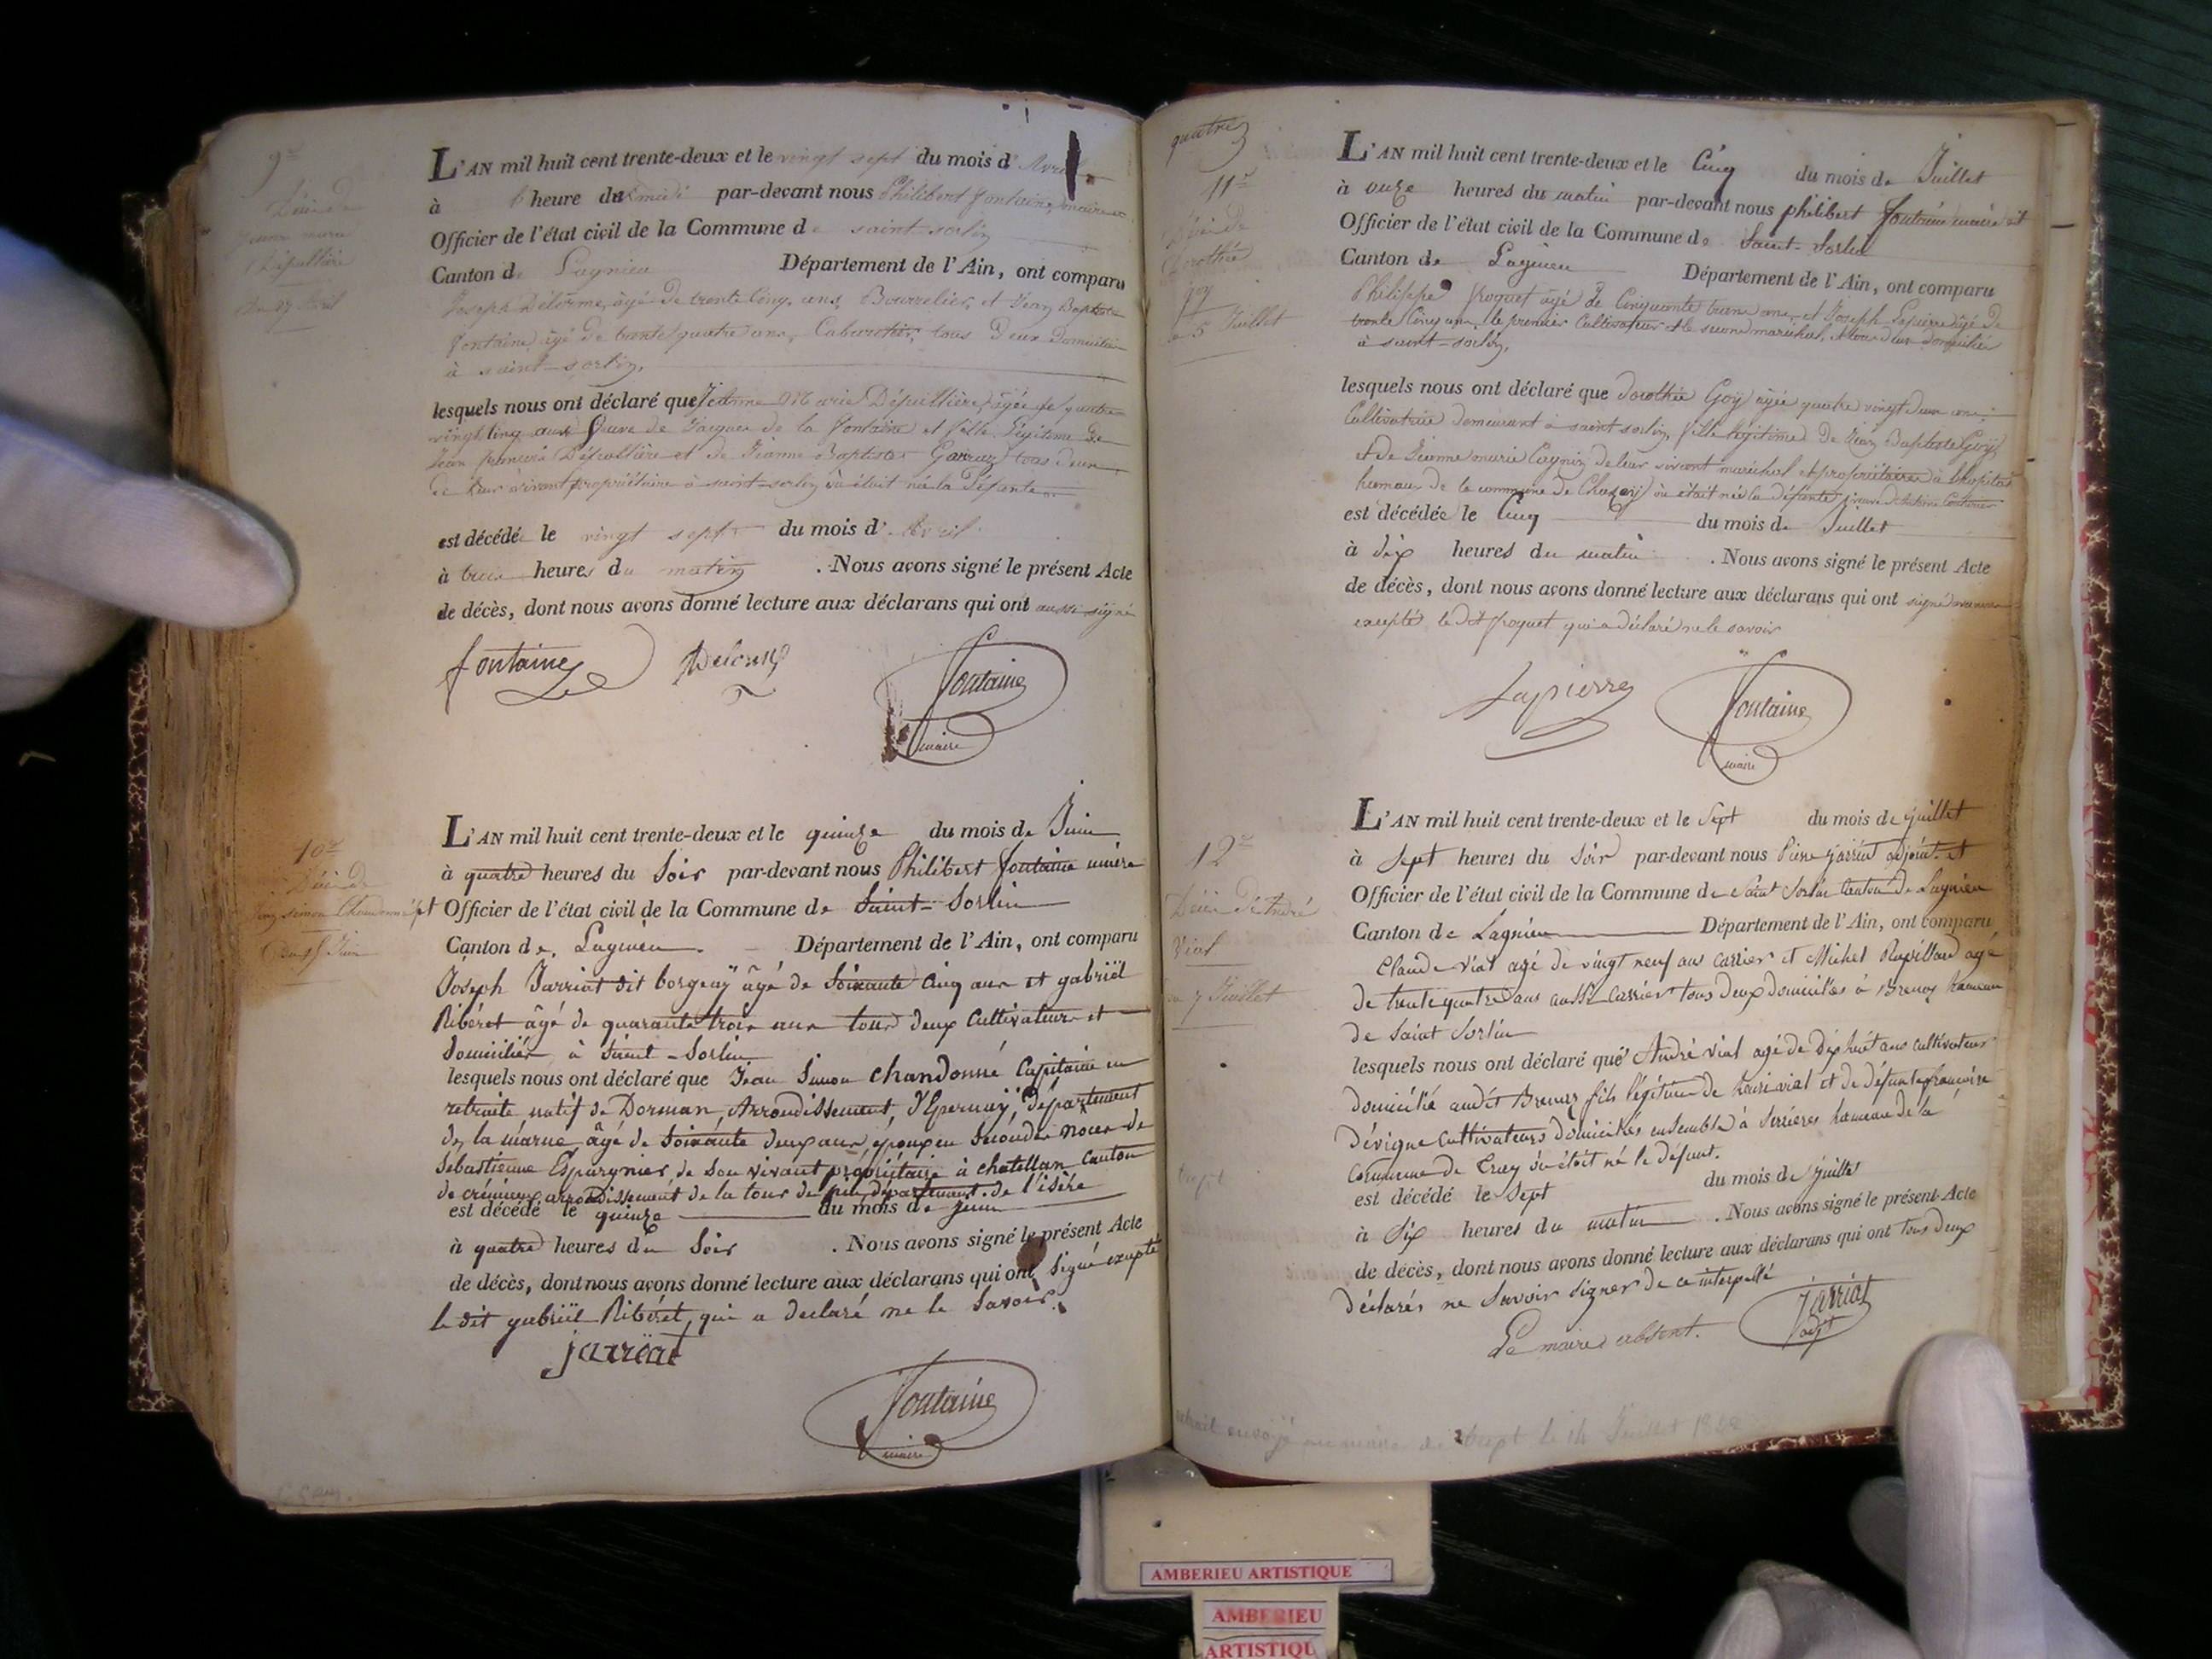 9e
Décès de
Jeanne marie
Dépullière
du 27 Avril
L'AN mil huit cent trente-deux et le vingt sept du mois d'Avril
à heure du midi par-devant nous Philibert fontaine, maire et
Officier de l'état civil de la Commune de saint-sorlin
Canton de Lagnieu Département de l'Ain, ont comparu
Joseph Délorme, âgé De trente Cinq ans, Bourrelier, et Jean Baptiste
fontaine âgé de trente quatre ans, Cabaretier, tous Deux Domiciliés
à saint-sorlin,
lesquels nous ont déclaré que Jeanne Marie Dépullière, âgée de quatre
vingt cinq ans veuve de Jacques de la fontaine et fille légitime De
Jean francois Dépullière et de Jeanne Baptiste tous deux
de leur vivant propriétaire à saint-sorlin où était née la Défunte
est décédée le vingt sept du mois d'Avril
à trois heures du matin . Nous avons signé le présent Acte
de décès, dont nous avons donné lecture aux déclarans qui ont aussi signé
fontaine Delorme fontaine
maire
10e
Décès de
Jean simon Chandonné
du 15 Juin
L'AN mil huit cent trente-deux et le quinze du mois de Juin
à quatre heures du Soir par-devant nous Philibert fontaine maire
et Officier de l'état civil de la Commune de Saint-Sorlin
Canton de Lagnieu Département de l'Ain, ont comparu
Joseph Jarriat dit borgeaÿ âgé de Soixante Cinq ans et gabriël
Ribéret âgé de quarante trois ans tous deux Cultivateurs et
domiciliés à Saint-Sorlin
lesquels nous ont déclaré que Jean Simon Chandonné Capitaine en
retraite natif de Dorman, Arrondissement d'Epernaÿ, département
de la marne âgé de Soixante deux ans époux en Secondes noces de
Sébastienne Espargnier de Son vivant propriétaire à chatellan Canton
de crémieux arrondissement de la tour du pin, département de l'isère
est décédé le quinze du mois de juin
à quatre heures du Soir . Nous avons signé le présent Acte
de décès, dont nous avons donné lecture aux déclarans qui ont Signé excepté
le dit gabriël Ribéret, qui a declaré ne le Savoir.
jarriat
fontaine
maire
quatre
11e
Décès de
Dorothée
Goy
du 5 Juillet
L'AN mil huit cent trente-deux et le Cinq du mois de Juillet
à onze heures du matin par-devant nous philibert fontaine maire et
Officier de l'état civil de la Commune de Saint-Sorlin
Canton de Lagnieu Département de l'Ain, ont comparu
Philippe froquet âgé de Cinquante ans, et Joseph Lapierre âgé de
trente Cinq ans, le premier Cultivateur et le second maréchal, tous deux domiciliés
à saint-sorlin,
lesquels nous ont déclaré que dorothée Goÿ âgée quatre vingt deux ans
Cultivatrice demeurant à saint sorlin, fille légitime De Jean Baptiste Goÿ,
et de Jeanne marie de leur vivant maréchal et propriétaires à l'hopital
hameau de la commune de Chazeÿ où était née la défunte, veuve d'Antoine
est décédée le Cinq du mois de Juillet
à dix heures du matin . Nous avons signé le présent Acte
de décès, dont nous avons donné lecture aux déclarans qui ont signé avec nous
excepté le dit froquet qui a déclaré ne le savoir
Lapierre fontaine
maire
12e
Décès de André
Vial
du 7 Juillet
L'AN mil huit cent trente-deux et le Sept du mois de juillet
à Sept heures du Soir par-devant nous Pierre Jarriat adjoint et
Officier de l'état civil de la Commune de Saint Sorlin Canton de Lagnieu
Canton de Lagnieu Département de l'Ain, ont comparu
Claude vial agé de vingt neuf ans carrier et Michel Rapillard agé
de trente quatre ans aussi carrier tous deux domiciliés à Brenaz hameau
de Saint Sorlin
lesquels nous ont déclaré que André vial agé de dix huit ans cultivateur
domicilié audit Brenaz fils légitime de vial et de défunte francoise
dévigne cultivateurs domiciliés ensemble à Serrières hameau de la
Commune de Trep où étoit né le défunt.
est décédé le Sept du mois de juillet
à Six heures du matin . Nous avons signé le présent Acte
de décès, dont nous avons donné lecture aux déclarans qui ont tous deux
déclarés ne Savoir Signer de ce interpellé
Le maire absent. Jarriat
adjt
extrait envoyé au maire de trept le 14 Juillet 1832
AMBERIEU ARTISTIQUE
AMBERIEU
ARTISTIQU